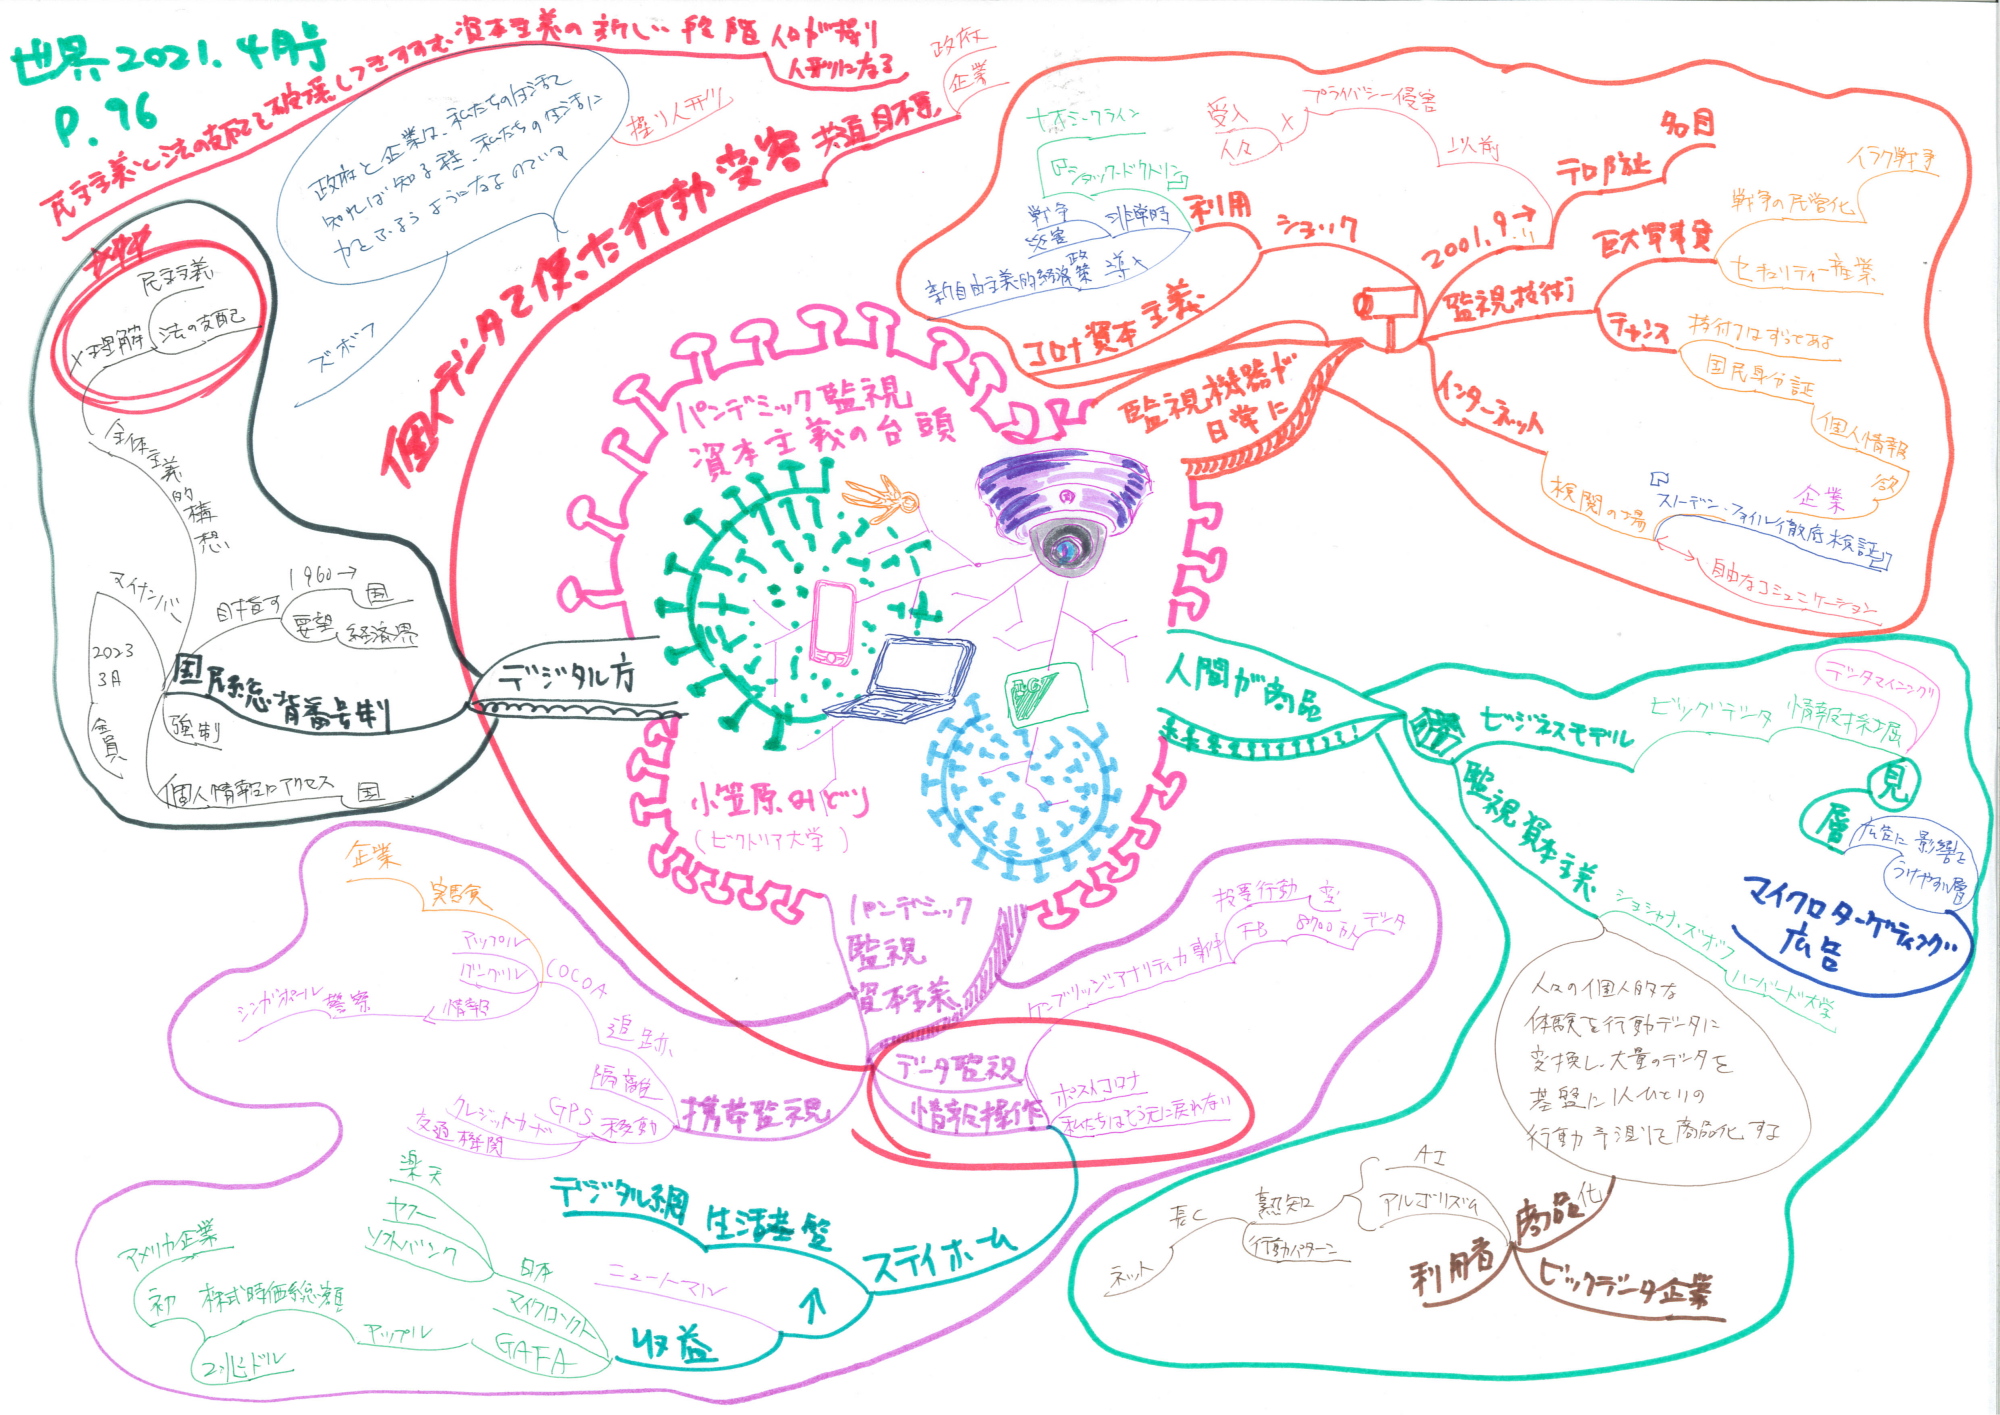 世界2021.4月号
P.96
民主主義と法の支配を破壊しつきすすむ資本主義の新しい段階
人口が操り
人形になる
個人データを使った行動変容
共通目的
政府
企業
操り人形
政府と企業は、私たちの生活を
知れば知る程、私たちの生活に
力をふるうようになるのです
ズボフ
パンデミック監視
資本主義の台頭
小笠原みどり
(ビクトリア大学)
5G
監視機器が
日常に
コロナ資本主義
ショック
利用
ナオミ・クライン
『ショック・ドクトリン』
戦争
災害
非常時
新自由主義的経済政策導入
監視技術
2001.9.11→
テロ防止
名目
以前
プライバシー侵害
×
受入
人々
巨大軍事費
戦争の民営化
イラク戦争
セキュリティー産業
チャンス
技術はすでにある
国民身分証
個人情報
欲
企業
インターネット
検閲の場
『スノーデン・ファイル徹底検証』
自由なコミュニケーション
人間が商品
ビジネスモデル
ビッグデータ
情報採掘
データマイニング
監視資本主義
ショシャナ・ズボフ
ハーバード大学
人々の個人的な
体験を行動データに
変換し、大量のデータを
基盤に1人ひとりの
行動予測を商品化する
商品化
ビックデータ企業
利用者
AI
アルゴリズム
熟知
行動パターン
長く
ネット
マイクロターゲティング
広告
広告に影響を
うけやすい層
層
見
パンデミック
監視
資本主義
データ監視
ケンブリッジ・アナリティカ事件
FB
8700万人データ
投票行動
変
情報操作
ポストコロナ
私たちはもう元に戻れない
ステイホーム
生活基盤
デジタル網
↑
ニューノーマル
収益
GAFA
マイクロソフト
日本
楽天
ヤフー
ソフトバンク
アップル
株式時価総額
初
アメリカ企業
2兆ドル
携帯監視
追跡
COCOA
アップル
グーグル
情報
警察
シンガポール
実験
企業
隔離
移動
GPS
クレジットカード
交通機関
デジタル庁
国民総背番号制
目指す
1960→
国
要望
経済界
マイナンバー
2023
3月
全員
強制
個人情報にアクセス
国
全体主義的構想
×理解
民主主義
法の支配